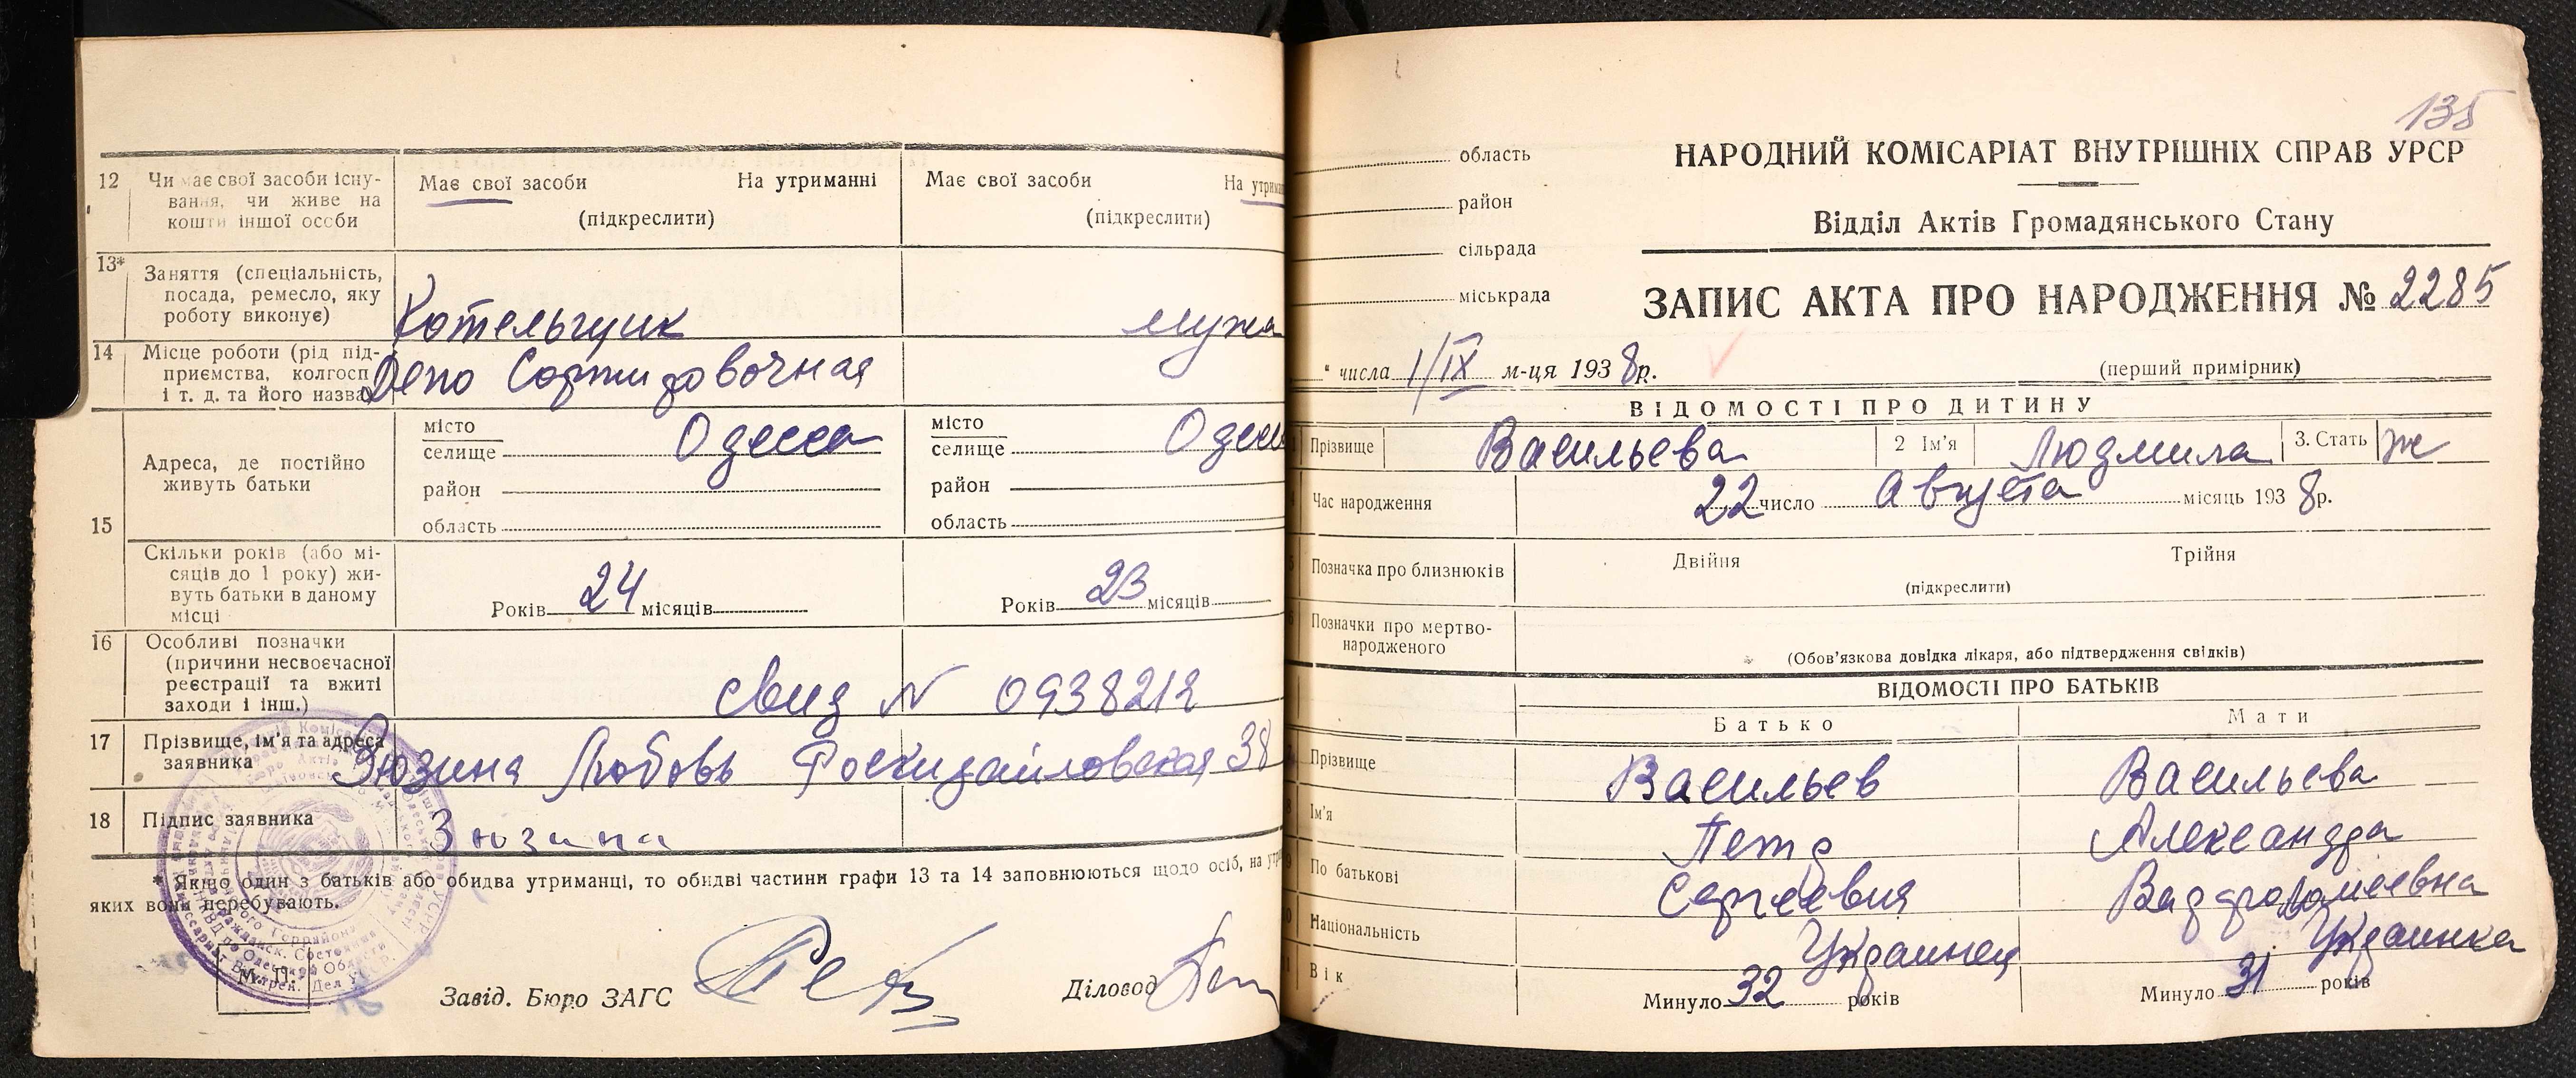 12 Чи має свої засоби існу-
вання, чи живе на
кошти іншої особи
Має свої засоби На утриманні
(підкреслити)
Має свої засоби На утрим
(підкреслити)
13* Заняття (спеціальність,
посада, ремесло, яку
роботу виконує)
Котельщик
мужа
14 Місце роботи (рід під-
приємства, колгосп
і т. д. та його назва)
Депо Сортировочная
15 Адреса, де постійно
живуть батьки
місто
селище Одесса
район
область
місто
селище Одесс
район
область
Скільки років (або мі-
сяців до 1 року) жи-
вуть батьки в даному
місці
Років 24 місяців
Років 23 місяців
16 Особливі позначки
(причини несвоєчасної
реєстрації та вжиті
заходи і інш.)
свид N 0938212
17 Прізвище, ім'я та адреса
заявника
Зюзина Любовь 38
18 Підпис заявника
Зюзина
* Якщо один з батьків або обидва утриманці, то обидві частини графи 13 та 14 заповнюються щодо осіб, на утри
яких вони перебувають.
М. П.
Завід. Бюро ЗАГС
Діловод
135
область
район
сільрада
міськрада
НАРОДНИЙ КОМІСАРІАТ ВНУТРІШНІХ СПРАВ УРСР
Відділ Актів Громадянського Стану
ЗАПИС АКТА ПРО НАРОДЖЕННЯ № 2285
" числа 1/IX м-ця 1938р.
(перший примірник)
ВІДОМОСТІ ПРО ДИТИНУ
Прізвище Васильева 2 Ім'я Людмила 3. Стать ж
Час народження 22 число Августа місяць 1938р.
Позначка про близнюків
Двійня Трійня
(підкреслити)
Позначки про мертво-
народженого
(Обов'язкова довідка лікаря, або підтвердження свідків)
ВІДОМОСТІ ПРО БАТЬКІВ
Батько Мати
Прізвище Васильев Васильева
Ім'я Петр Александра
По батькові Сергеевич Варфоломеевна
Національність Украинец Украинка
Вік Минуло 32 років Минуло 31 років